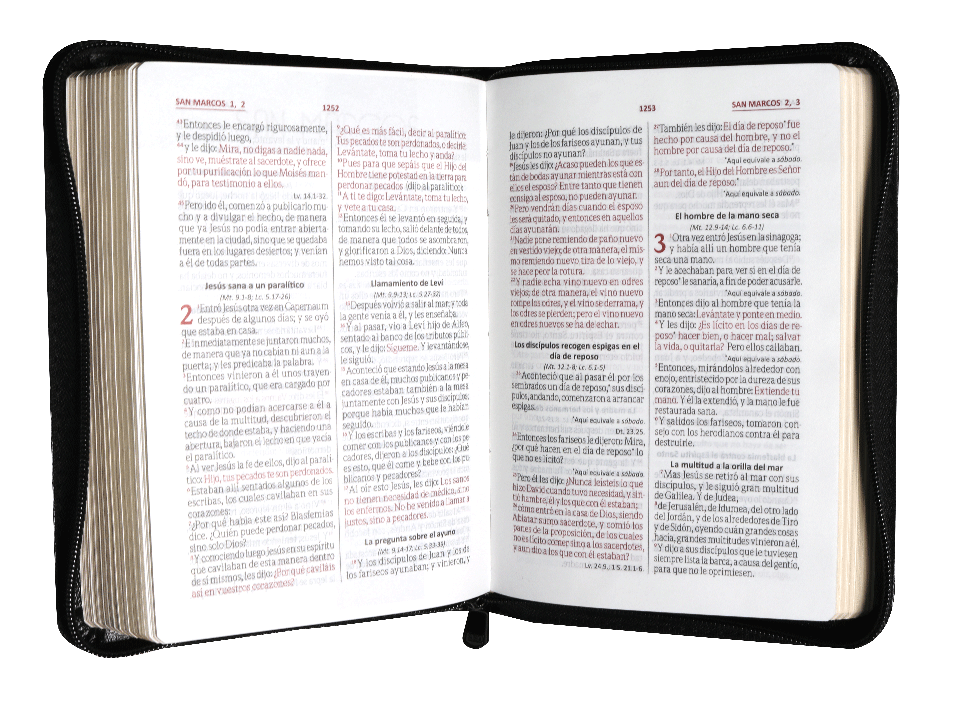 SAN MARCOS 1, 2
1252
⁴³Entonces le encargó rigurosamente,
y le despidió luego,
⁴⁴y le dijo: Mira, no digas a nadie nada,
sino ve, muéstrate al sacerdote, y ofrece
por tu purificación lo que Moisés man-
dó, para testimonio a ellos.
Lv. 14.1-32.
⁴⁵Pero ido él, comenzó a publicarlo mu-
cho y a divulgar el hecho, de manera
que ya Jesús no podía entrar abierta
mente en la ciudad, sino que se quedaba
fuera en los lugares desiertos; y venían
a él de todas partes.
Jesús sana a un paralítico
(Mt. 9.1-8; Lc. 5.17-26)
2 ¹Entró Jesús otra vez en Capernaum
después de algunos días; y se oyó
que estaba en casa.
²E inmediatamente se juntaron muchos,
de manera que ya no cabían ni aun a la
puerta; y les predicaba la palabra.
³Entonces vinieron a él unos trayen
do un paralítico, que era cargado por
cuatro.
⁴Y como no podían acercarse a él a
causa de la multitud, descubrieron el
techo de donde estaba, y haciendo una
abertura, bajaron el lecho en que yacía
el paralítico.
⁵Al ver Jesús la fe de ellos, dijo al paralí-
tico: Hijo, tus pecados te son perdonados.
⁶Estaban allí sentados algunos de los
escribas, los cuales cavilaban en sus
corazones:
⁷¿Por qué habla éste así? Blasfemias
dice. ¿Quién puede perdonar pecados,
sino solo Dios?
⁸Y conociendo luego Jesús en su espíritu
que cavilaban de esta manera dentro
de sí mismos, les dijo: ¿Por qué caviláis
así en vuestros corazones?
⁹¿Qué es más fácil, decir al paralítico:
Tus pecados te son perdonados, o decirle:
Levántate, toma tu lecho y anda?
¹⁰Pues para que sepáis que el Hijo del
Hombre tiene potestad en la tierra para
perdonar pecados (dijo al paralítico):
¹¹A ti te digo: Levántate, toma tu lecho,
y vete a tu casa.
¹²Entonces él se levantó en seguida, y
tomando su lecho, salió delante de todos,
de manera que todos se asombraron,
y glorificaron a Dios, diciendo: Nunca
hemos visto tal cosa.
Llamamiento de Leví
(Mt. 9.9-13; Lc. 5.27-32)
¹³Después volvió a salir al mar; y toda
la gente venía a él, y les enseñaba.
¹⁴Y al pasar, vio a Leví hijo de Alfeo,
sentado al banco de los tributos públi-
cos, y le dijo: Sígueme. Y levantándose,
le siguió.
¹⁵Aconteció que estando Jesús a la mesa
en casa de él, muchos publicanos y pe-
cadores estaban también a la mesa
juntamente con Jesús y sus discípulos;
porque había muchos que le habían
seguido.
¹⁶Y los escribas y los fariseos, viéndole
comer con los publicanos y con los pe-
cadores, dijeron a los discípulos: ¿Qué
es esto, que él come y bebe con los pu-
blicanos y pecadores?
¹⁷Al oír esto Jesús, les dijo: Los sanos
no tienen necesidad de médico, sino
los enfermos. No he venido a llamar a
justos, sino a pecadores.
La pregunta sobre el ayuno
(Mt. 9.14-17; Lc. 5.33-39)
¹⁸Y los discípulos de Juan y los de
los fariseos ayunaban; y vinieron, y
1253
SAN MARCOS 2, 3
le dijeron: ¿Por qué los discípulos de
Juan y los de los fariseos ayunan, y tus
discípulos no ayunan?
¹⁹Jesús les dijo: ¿Acaso pueden los que es
tán de bodas ayunar mientras está con
ellos el esposo? Entre tanto que tienen
consigo al esposo, no pueden ayunar.
²⁰Pero vendrán días cuando el esposo
les será quitado, y entonces en aquellos
días ayunarán.
²¹Nadie pone remiendo de paño nuevo
en vestido viejo; de otra manera, el mis
mo remiendo nuevo tira de lo viejo, y
se hace peor la rotura.
²²Y nadie echa vino nuevo en odres
viejos; de otra manera, el vino nuevo
rompe los odres, y el vino se derrama, y
los odres se pierden; pero el vino nuevo
en odres nuevos se ha de echar.
Los discípulos recogen espigas en el
día de reposo
(Mt. 12.1-8; Lc. 6.1-5)
²³Aconteció que al pasar él por los
sembrados un día de reposo,* sus discí
pulos, andando, comenzaron a arrancar
espigas.
*Aquí equivale a sábado.
Dt. 23.25.
²⁴Entonces los fariseos le dijeron: Mira,
¿por qué hacen en el día de reposo* lo
que no es lícito?
*Aquí equivale a sábado.
²⁵Pero él les dijo: ¿Nunca leísteis lo que
hizo David cuando tuvo necesidad, y sin-
tió hambre, él y los que con él estaban;
²⁶cómo entró en la casa de Dios, siendo
Abiatar sumo sacerdote, y comió los
panes de la proposición, de los cuales
no es lícito comer sino a los sacerdotes,
y aun dio a los que con él estaban?
Lv. 24.9., 1 S. 21.1-6.
²⁷También les dijo: El día de reposo* fue
hecho por causa del hombre, y no el
hombre por causa del día de reposo.*
*Aquí equivale a sábado.
²⁸Por tanto, el Hijo del Hombre es Señor
aun del día de reposo.*
*Aquí equivale a sábado.
El hombre de la mano seca
(Mt. 12.9-14; Lc. 6.6-11)
3 ¹Otra vez entró Jesús en la sinagoga;
y había allí un hombre que tenía
seca una mano.
²Y le acechaban para ver si en el día de
reposo* le sanaría, a fin de poder acusarle.
*Aquí equivale a sábado.
³Entonces dijo al hombre que tenía la
mano seca: Levántate y ponte en medio.
⁴Y les dijo: ¿Es lícito en los días de re-
poso* hacer bien, o hacer mal; salvar
la vida, o quitarla? Pero ellos callaban.
*Aquí equivale a sábado.
⁵Entonces, mirándolos alrededor con
enojo, entristecido por la dureza de sus
corazones, dijo al hombre: Extiende tu
mano. Y él la extendió, y la mano le fue
restaurada sana.
⁶Y salidos los fariseos, tomaron con-
sejo con los herodianos contra él para
destruirle.
La multitud a la orilla del mar
⁷Mas Jesús se retiró al mar con sus
discípulos, y le siguió gran multitud
de Galilea. Y de Judea,
⁸de Jerusalén, de Idumea, del otro lado
del Jordán, y de los alrededores de Tiro
y de Sidón, oyendo cuán grandes cosas
hacía, grandes multitudes vinieron a él.
⁹Y dijo a sus discípulos que le tuviesen
siempre lista la barca, a causa del gentío,
para que no le oprimiesen.